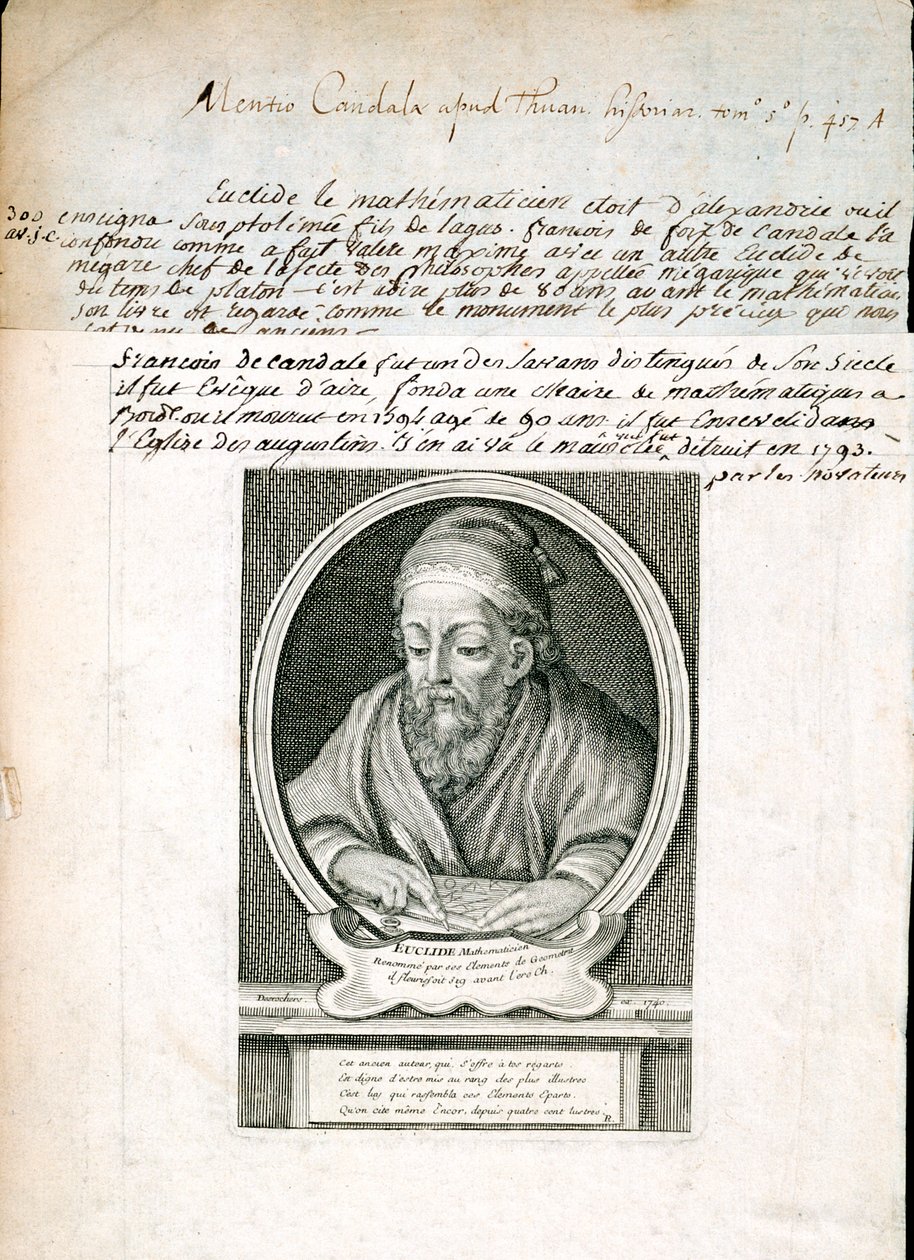 Mentio Candalæ apud Thuan. historiar. tom° 5° p. 457 A
Euclide le mathématicien etoit d'alexandrie ou il
300 enseigna sous ptolémée fils de lagus. francois de foix de candale l'a
av. J. C confondu comme a fait valere maxime avec un autre Euclide de
mégare chef de la secte des philosophes appellée mégarique qui vivoit
du tems de platon c'est a dire plus de 80 ans avant le mathématicien
son livre est regardé comme le monument le plus précieux que nous
anciens
francois de candale fut un des savans distingués de son siecle
il fut Evêque d'aire, fonda une chaire de mathématiques a
Bord. ou il mourut en 1594 agé de 90 ans il fut Enseveli dans
l'Eglise des augustins. j'en ai vu le mausolée, qui fut détruit en 1793.
par les novateurs
EUCLIDE Mathematicien
Renommé par ses Elements de Geometrie
il fleurissoit 519 avant l'ere Ch.
Desrochers. ex. 1740.
Cet ancien auteur, qui s'offre à tes regarts
Est digne d'estre mis au rang des plus illustres
C'est luy qui rassembla ces Elements Eparts.
Qu'on cite même Encor, depuis quatre cent lustres
R.